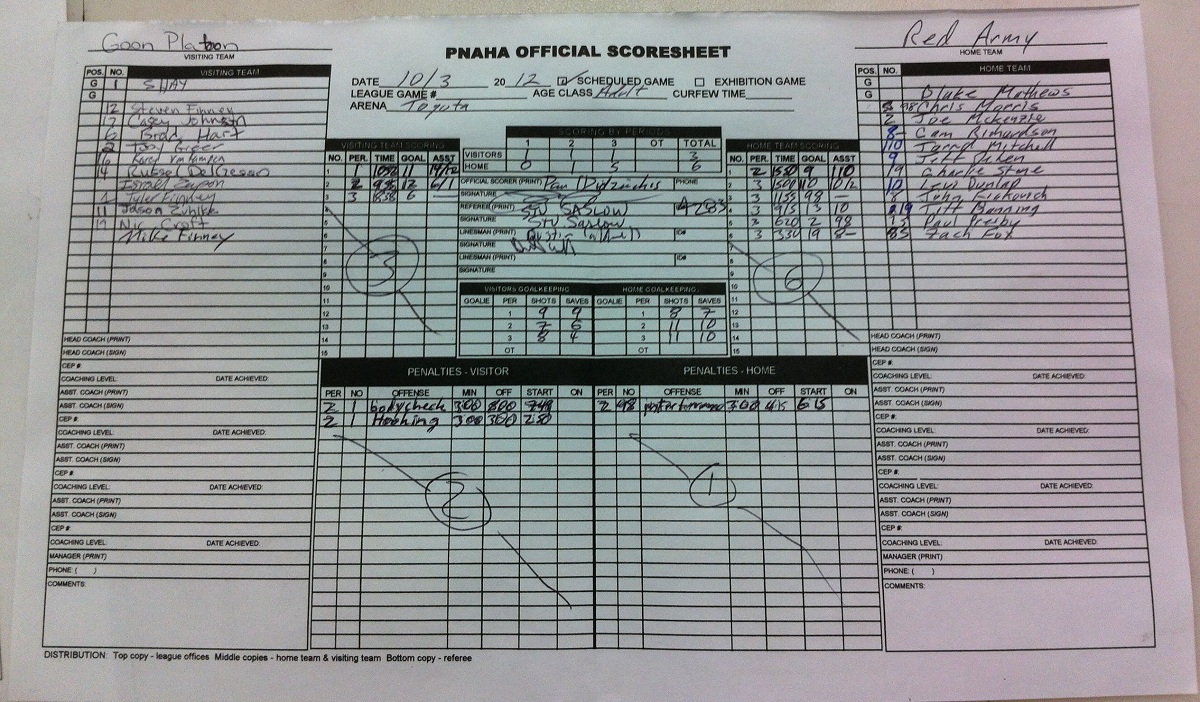 Goon Platoon
VISITING TEAM
PNAHA OFFICIAL SCORESHEET
Red Army
HOME TEAM
DATE 10/3 20 12 ☑ SCHEDULED GAME ☐ EXHIBITION GAME
LEAGUE GAME # AGE CLASS Adult CURFEW TIME
ARENA Toyota
POS. NO. VISITING TEAM
G 1 SHAY
G
12 Steven Finney
17 Casey Johnson
6 Brad Hart
2 Toby Greer
16
14
Tyler Finney
11 Jason
Nic Croft
Mike Finney
SCORING BY PERIODS
1 2 3 OT TOTAL
VISITORS 1 1 1 3
HOME 0 1 5 6
VISITING TEAM SCORING
NO. PER. TIME GOAL ASST
1 1 11 19/12
2 2 12 6/1
3 3 838 6 —
4
5
6
7
8
9
10
11
12
13
14
15
3
OFFICIAL SCORER (PRINT) Pam PHONE
SIGNATURE
REFEREE (PRINT) STU SASLOW
SIGNATURE Stu Saslow
LINESMAN (PRINT) ID#
SIGNATURE
LINESMAN (PRINT) ID#
SIGNATURE
VISITORS GOALKEEPING HOME GOALKEEPING
GOALIE PER SHOTS SAVES GOALIE PER SHOTS SAVES
1 9 9 1 8 7
2 7 6 2 11 10
3 8 4 3 11 10
OT OT
HOME TEAM SCORING
NO. PER. TIME GOAL ASST
1 2 1550 9 110
2 3 1500 110 10/2
3 3 1155 98 —
4 3 915 3 10
5 3 620 2 98
6 3 330 19 8-
7
8
9
10
11
12
13
14
15
6
POS. NO. HOME TEAM
G
G Bluke Mathews
98 Chris Morris
2 Joe Mckenzie
8- Cam Rimurdson
110 Jarrod Mitchell
9 Jeff
19 Charlie Stone
10 Levi Dunlap
John
Tiff Banning
Paul Presby
85 Zach Fox
HEAD COACH (PRINT)
HEAD COACH (SIGN)
CEP #:
COACHING LEVEL: DATE ACHIEVED:
ASST. COACH (PRINT)
ASST. COACH (SIGN)
CEP #:
COACHING LEVEL: DATE ACHIEVED:
ASST. COACH (PRINT)
ASST. COACH (SIGN)
CEP #:
COACHING LEVEL: DATE ACHIEVED:
ASST. COACH (PRINT)
ASST. COACH (SIGN)
CEP #:
COACHING LEVEL: DATE ACHIEVED:
MANAGER (PRINT)
PHONE: ( )
COMMENTS:
PENALTIES - VISITOR
PER NO OFFENSE MIN OFF START ON
2 1 bodycheck 300 800 749
2 1 Hooking 300 300 250
2
PENALTIES - HOME
PER NO OFFENSE MIN OFF START ON
2 98 300 615 615
1
HEAD COACH (PRINT)
HEAD COACH (SIGN)
CEP #:
COACHING LEVEL: DATE ACHIEVED:
ASST. COACH (PRINT)
ASST. COACH (SIGN)
CEP #:
COACHING LEVEL: DATE ACHIEVED:
ASST. COACH (PRINT)
ASST. COACH (SIGN)
CEP #:
COACHING LEVEL: DATE ACHIEVED:
ASST. COACH (PRINT)
ASST. COACH (SIGN)
CEP #:
COACHING LEVEL: DATE ACHIEVED:
MANAGER (PRINT)
PHONE: ( )
COMMENTS:
DISTRIBUTION: Top copy - league offices Middle copies - home team & visiting team Bottom copy - referee